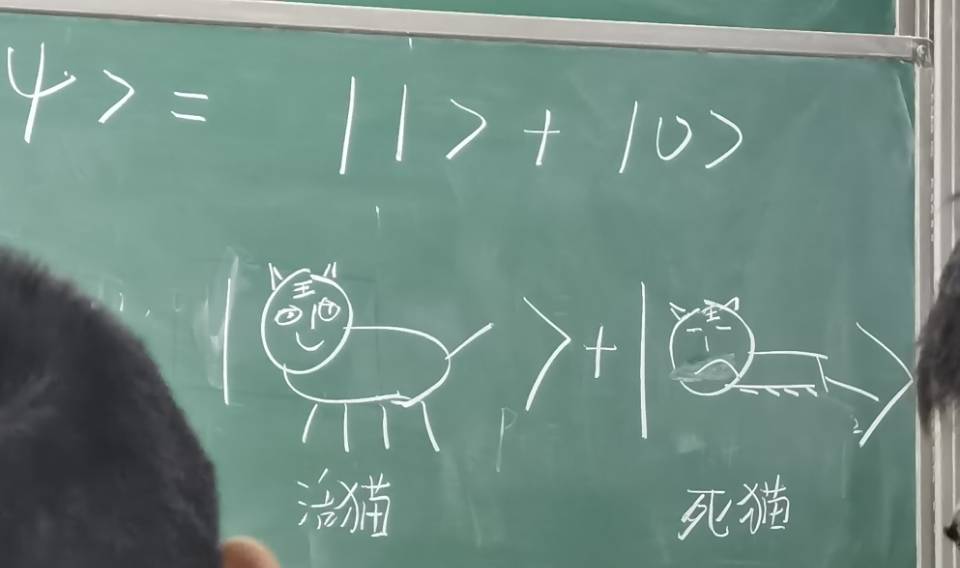 ψ> = |1> + |0>
| 王 > + | 王 >
活猫 死猫